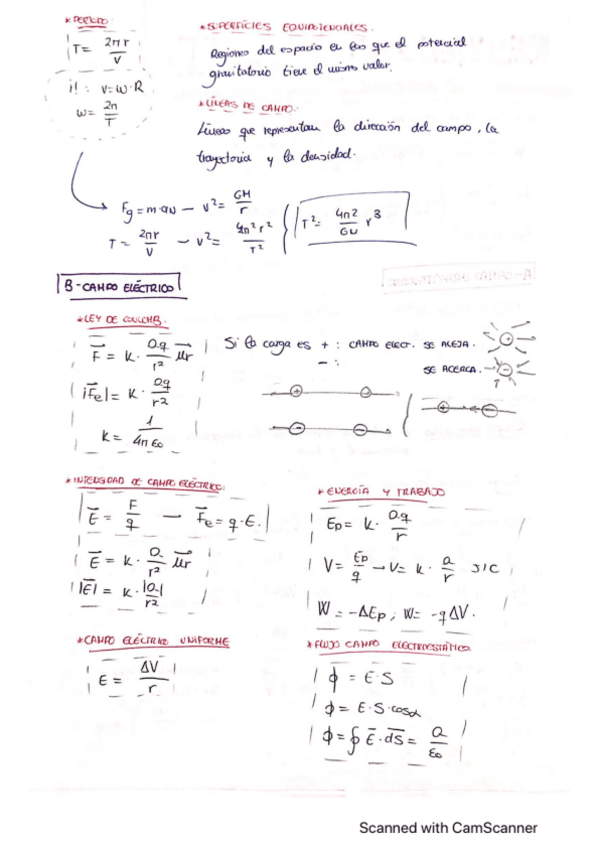 *PERIODO:
T = 2πr / V
¡!: V=ω·R
ω = 2π / T
*SUPERFICIES EQUIPOTENCIALES.
Regiones del espacio en las que el potencial
gravitatorio tiene el mismo valor.
*LÍNEAS DE CAMPO.
Líneas que representan la dirección del campo, la
trayectoria y la densidad.
Fg = m·an — V² = GM / r
T = 2πr / V — V² = 4π²r² / T²
T² = 4π2 / GM r³
B-CAMPO ELÉCTRICO
*LEY DE COULOMB.
F = K · Q·q / r² ur
|Fe| = K · Qq / r2
K = 1 / 4πε0
Si la carga es + : CAMPO ELECT. SE ALEJA.
- : SE ACERCA.
*INTENSIDAD DE CAMPO ELÉCTRICO:
E = F / q — Fe = q·E.
E = K · Q / r² ur
|E| = K · |Q| / r2
*ENERGÍA Y TRABAJO
Ep = K · Q·q / r
V = Ep / q → V = K · Q / r J/C
W = -ΔEp ; W = -qΔV.
*CAMPO ELÉCTRICO UNIFORME
E = ΔV / r
*FLUJO CAMPO ELECTROESTÁTICO.
ϕ = E·S
ϕ = E·S·cosα
ϕ = ∮ E·dS = Q / ε0
Scanned with CamScanner